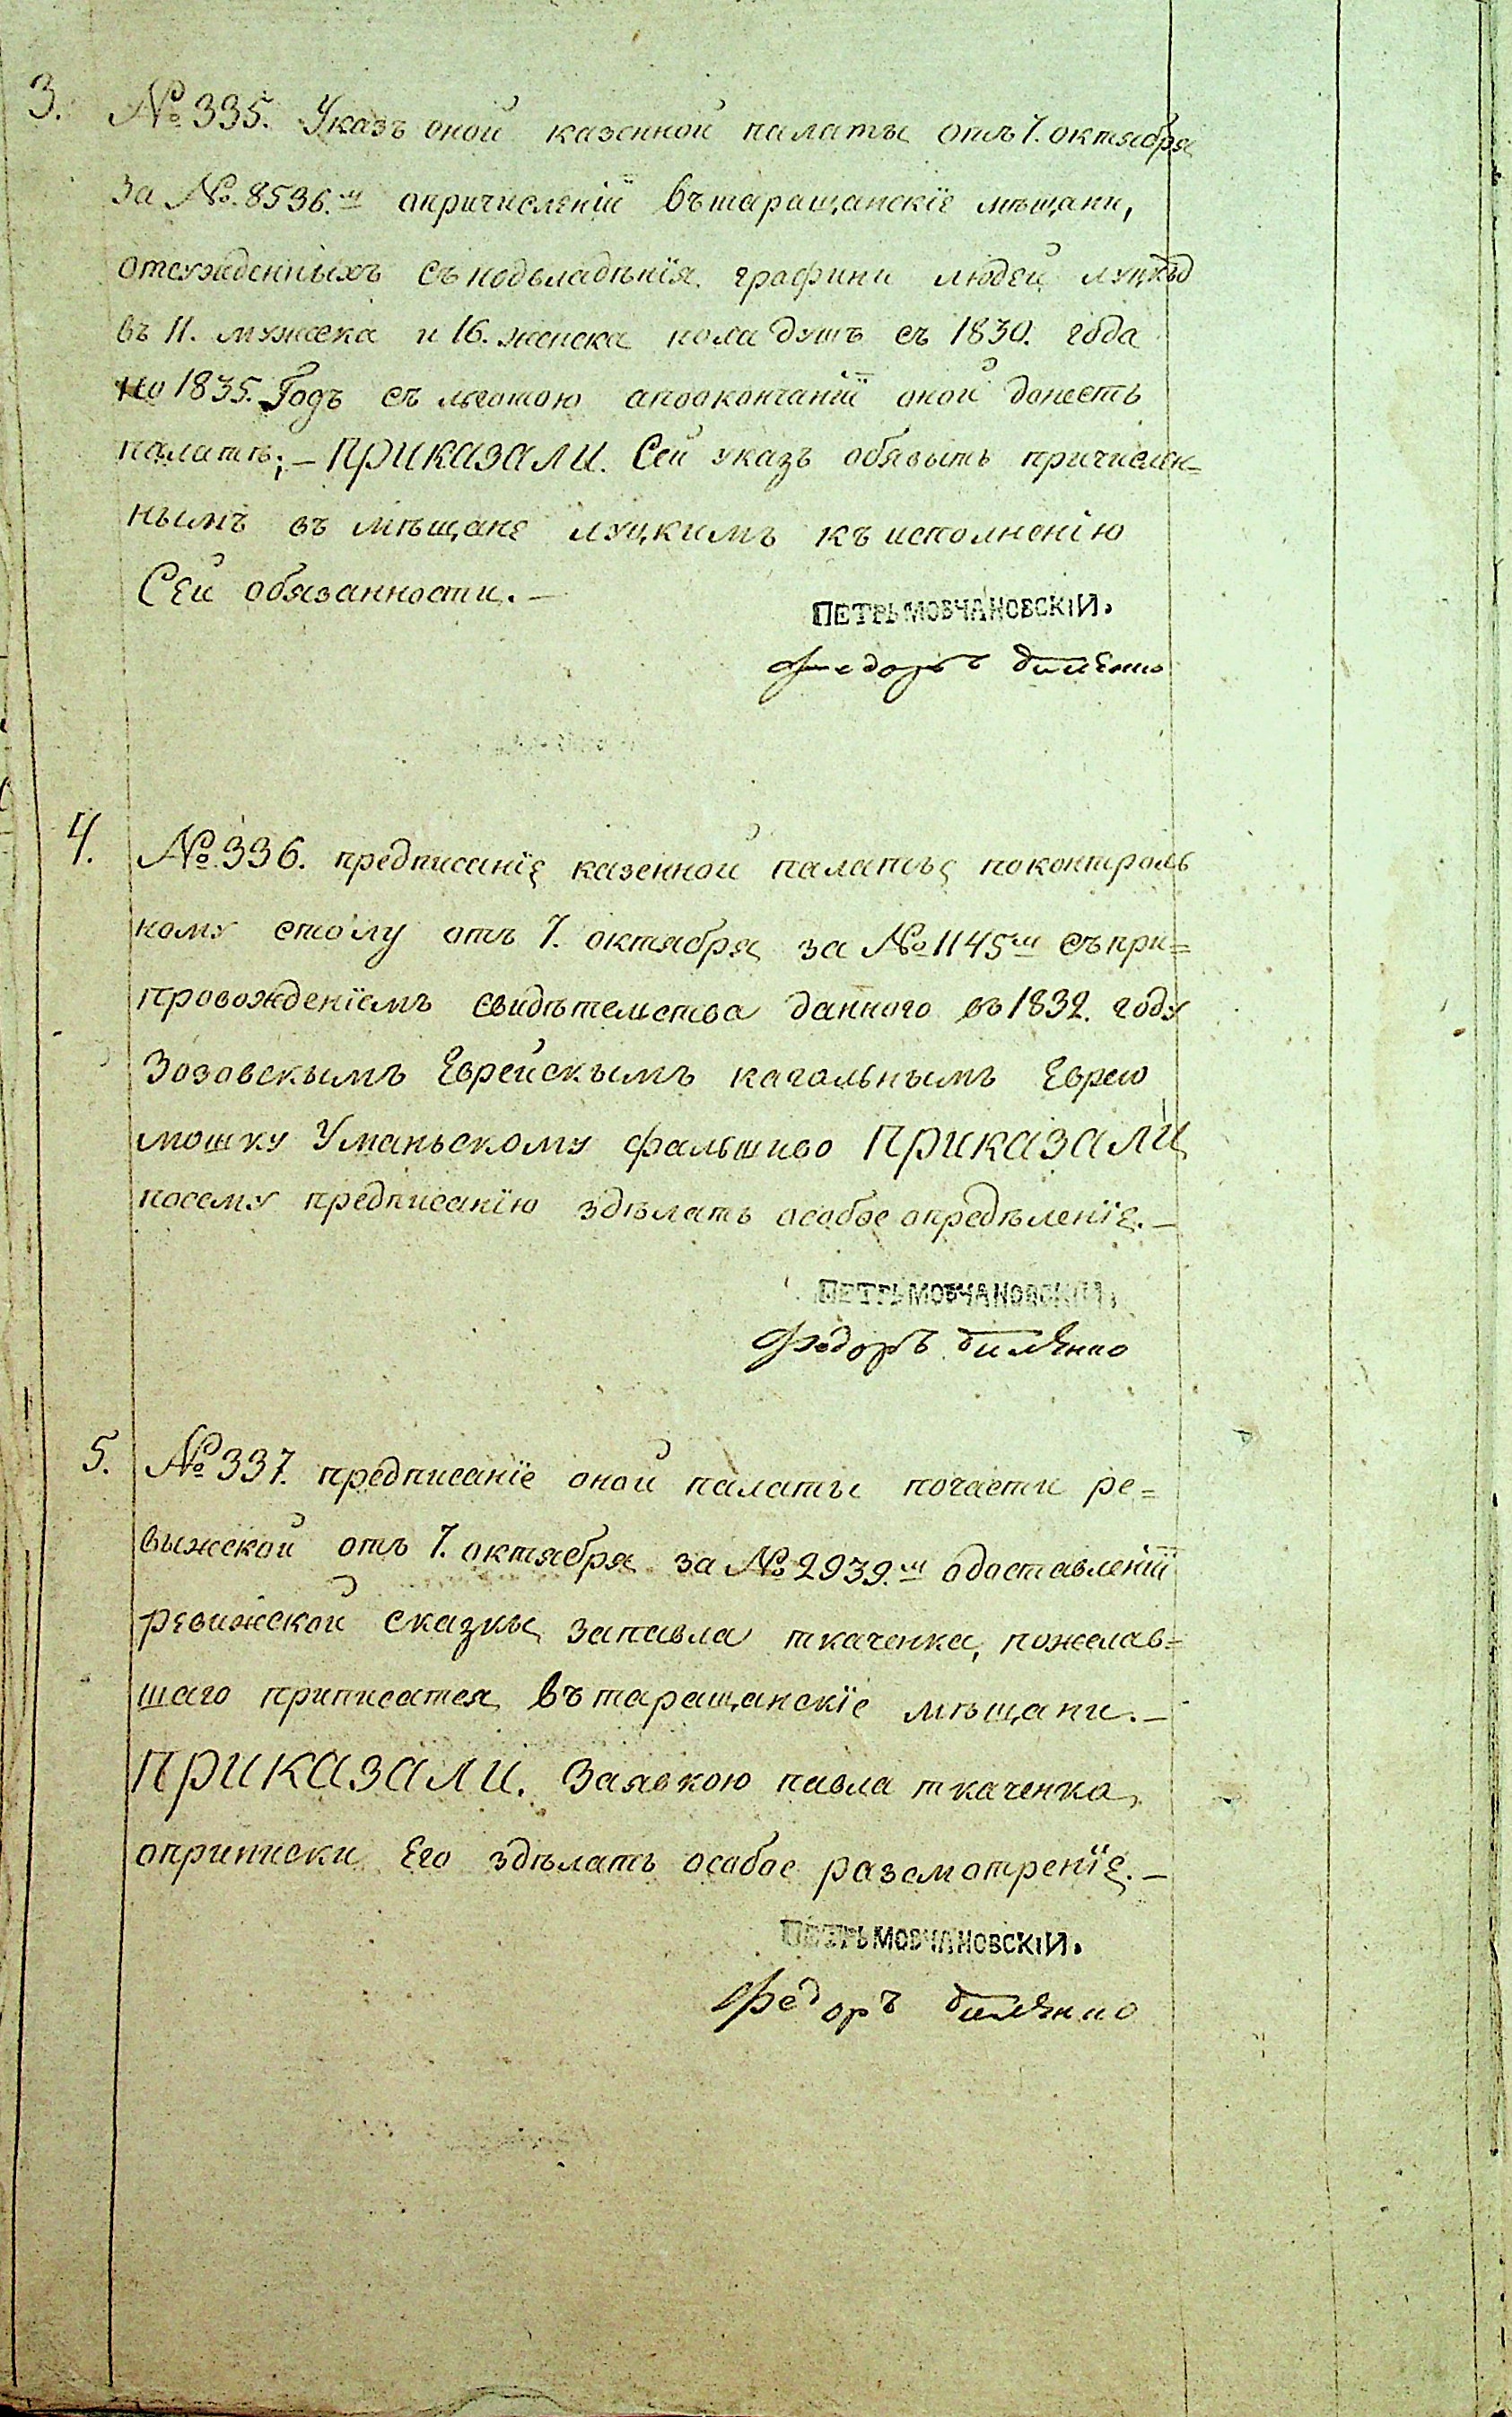 3. № 335. Указъ оной казенной палаты отъ 7. октября
за №. 8536.м опричисленіи вътаращанскіе мѣщани,
отсужденныхъ съ подвладѣнія графини людей луцкъ
въ 11. мужска и 16. женска пола душъ съ 1830. года
по 1835. Годъ съ льготою апоокончаніи оной донесть
палатѣ; – ПРИКАЗАЛИ. Сей указъ обявыть причислен=
нымъ въ мѣщане луцкимъ къ исполненію
Сей обязанности. –
ПЕТРЬ МОВЧАНОВСКІЙ.
Федоръ
4. № 336. предписаніе казенной палаты поконтроль
ному столу отъ 7. октября за № 1145м съпри=
провожденіемъ свидѣтельства данного въ 1832. году
Зозовскымъ Еврейскымъ кагальнымъ Еврею
мошку Уманьскому фальшиво ПРИКАЗАЛИ
посему предписанію здѣлать особое опредѣленіе. –
ПЕТРЬ МОВЧАНОВСКІЙ.
Федоръ
5. № 337. предписаніе оной палаты почасти ре=
выжской отъ 7. октября за № 2939.м одоставленіи
ревижской сказкы запавла ткаченка, пожелав=
шаго приписатся вътаращанскіе мѣщани. –
ПРИКАЗАЛИ. Заявкою павла ткаченка
оприписки Его здѣлать особое разсмотреніе. –
ПЕТРЬ МОВЧАНОВСКІЙ.
Федоръ